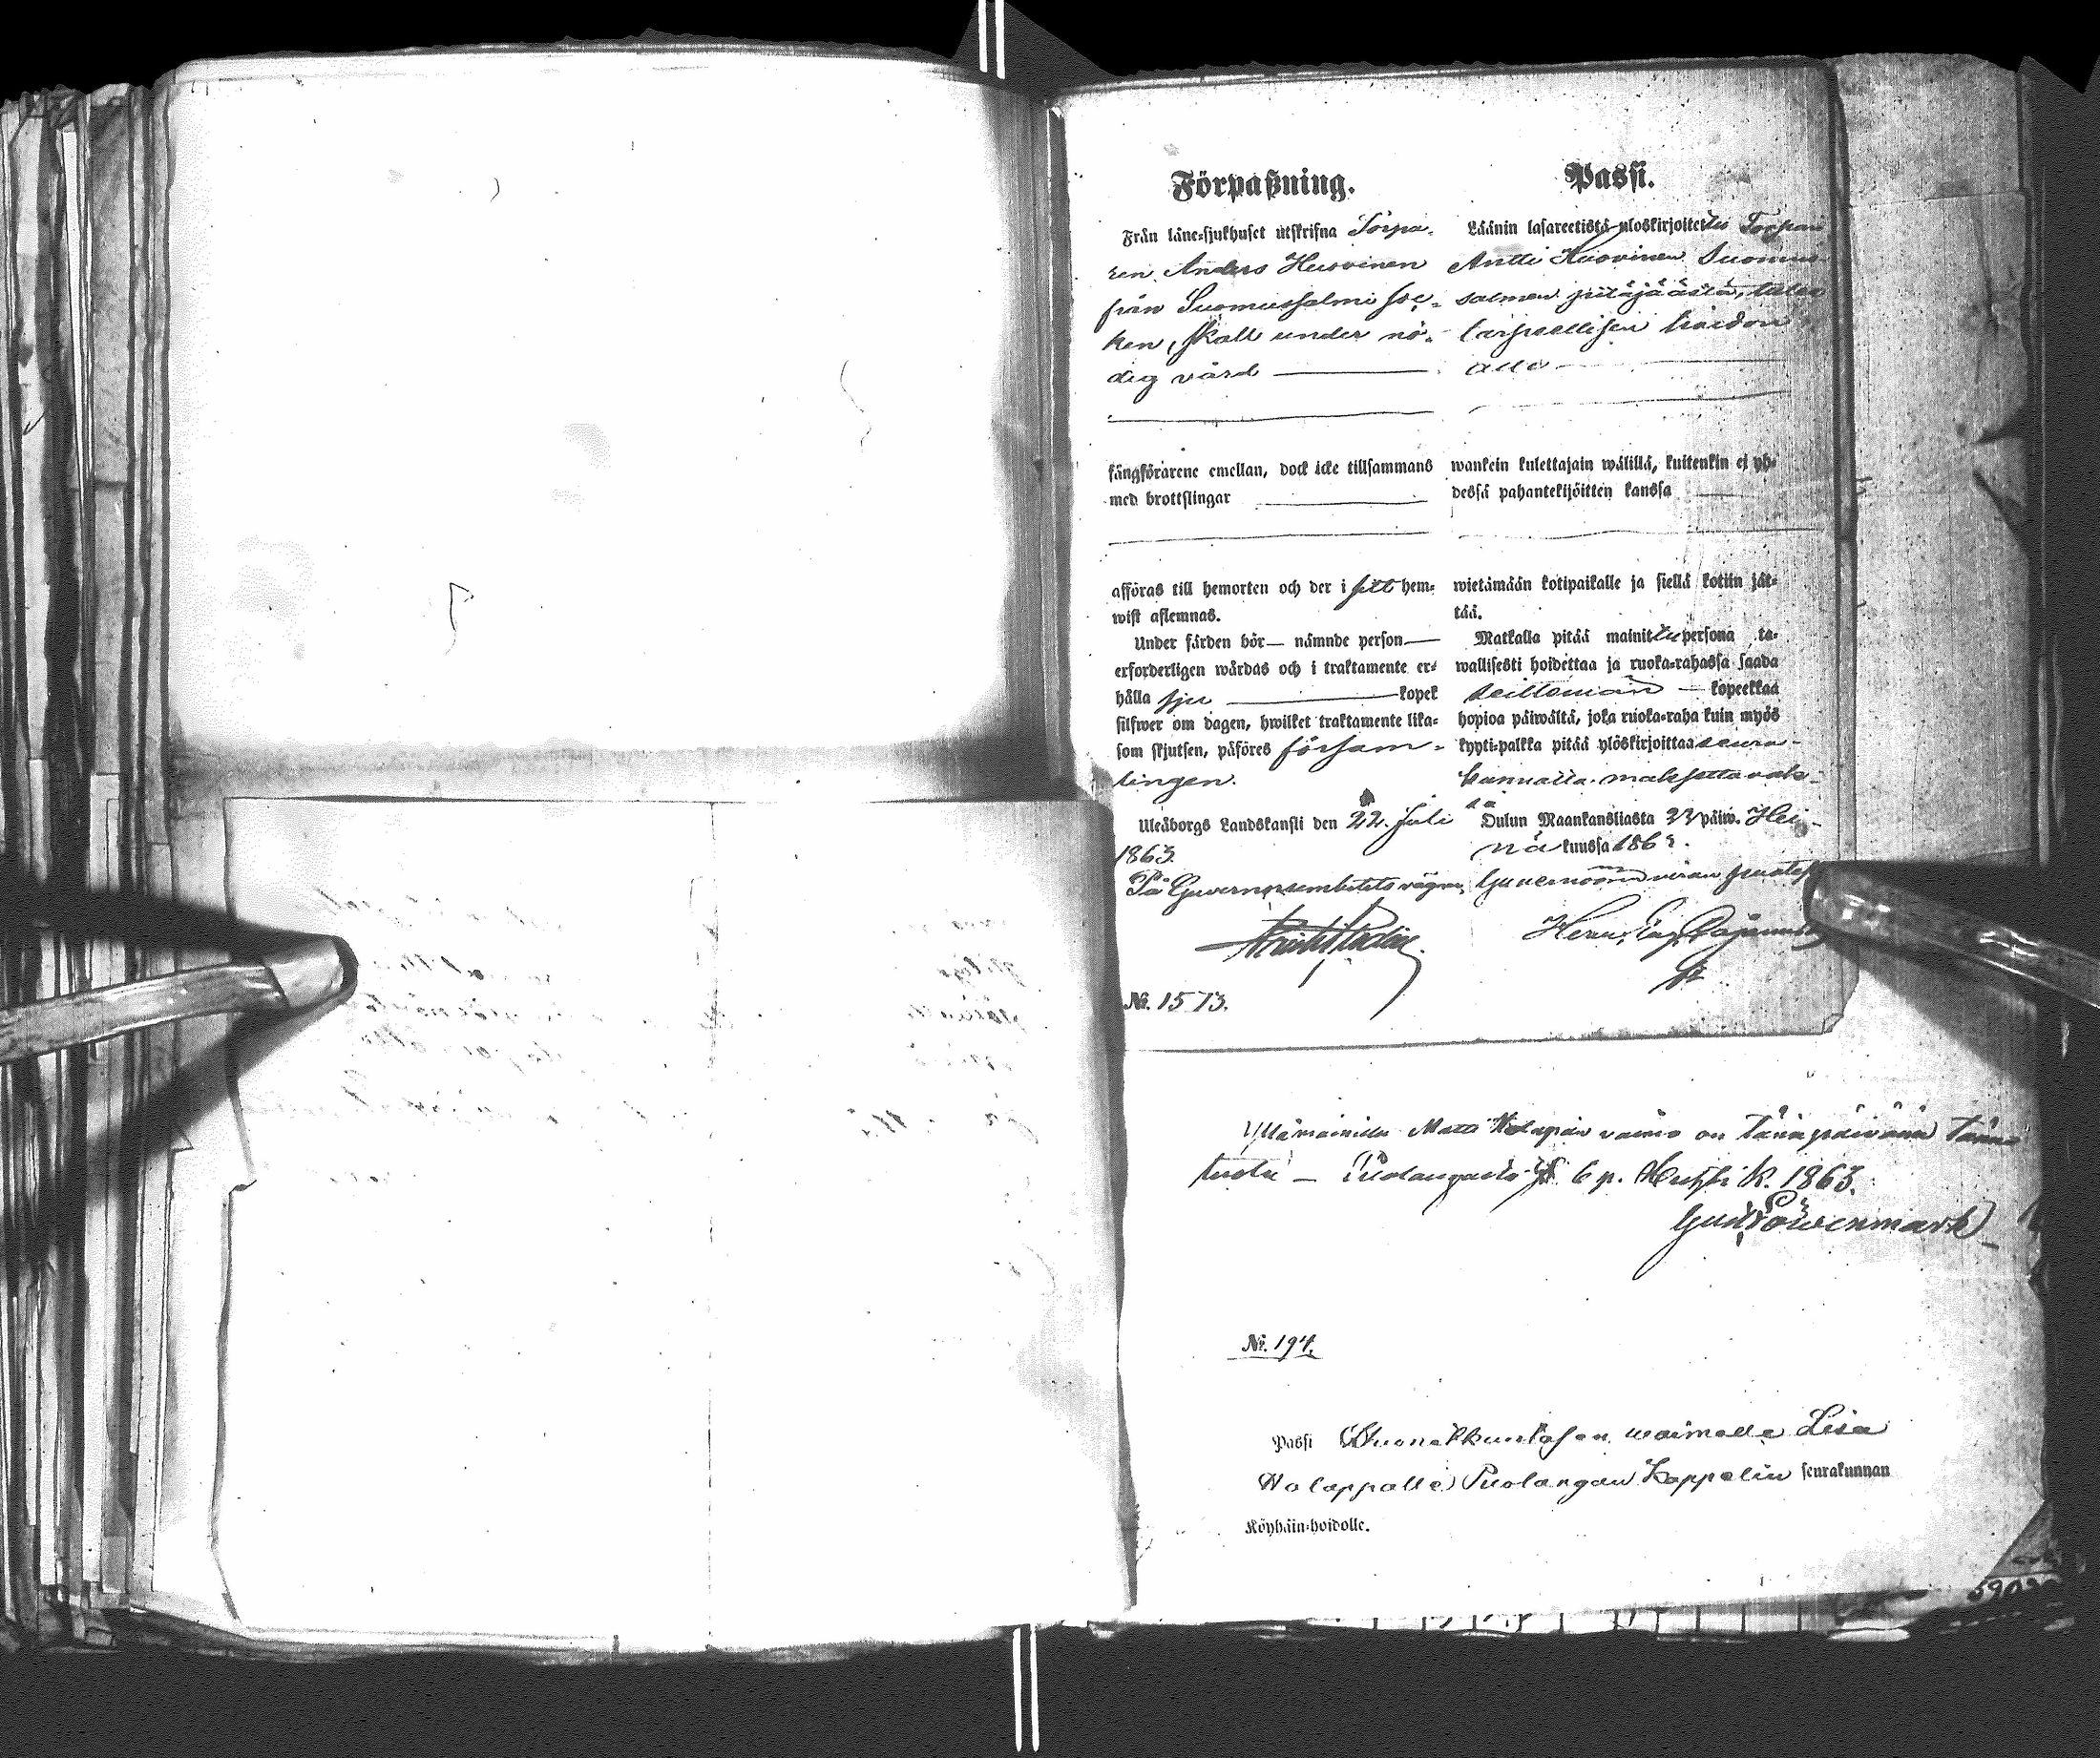 Förpaßning.
Från läne-sjukhuset utskrifna Torpa-
ren Anders Huovinen
från Suomussalmi soc-
ken, skall under nö-
dig vård
fångförarene emellan, dock icke tillsammans
med brottslingar
afföras till hemorten och der i sitt hem-
wist aflemnas.
Under färden bör— nämnde person—
erforderligen wårdas och i traktamente er-
hålla sju kopek
silfwer om dagen, hwilket traktamente lika-
som skjutsen, påföres försam-
lingen.
Uleåborgs Landskansli den 22. Juli
1863.
På Guvernörsembetets vägnar,
№. 1573.
Passi.
Läänin lasareetistä uloskirjoitettu Torpari
Antti Huovinen Suomus-
salmen pitäjäästä, tulee
tarpeellisen hoidon
alla
wankein kulettajain wälillä, kuitenkin ej yh-
dessä pahantekijöitten kanssa
wietämään kotipaikalle ja siellä kotiin jät-
tää.
Matkalla pitää mainittu persona ta-
wallisesti hoidettaa ja ruoka-rahassa saada
seitsemän — kopeekkaa
hopioa päiwältä, joka ruoka-raha kuin myös
kyyti-palkka pitää ylöskirjoittaa seura-
kunnalta maksetta vak-
si
Oulun Maankansliasta 22 päiw. Hei-
nä kuussa 1863.
Guvernöörin viran puolesta
Yllämainittu Matti Holapan vaimo on tänäpäivänä tänne
tuotu — Puolangasta 6 p. Huhti k. 1863.
Gust Löwenmark
№. 194.
Passi Huonekuntasen waimolle Lisa
Holappalle Puolangan Kappelin seurakunnan
Köyhäin-hoidolle.